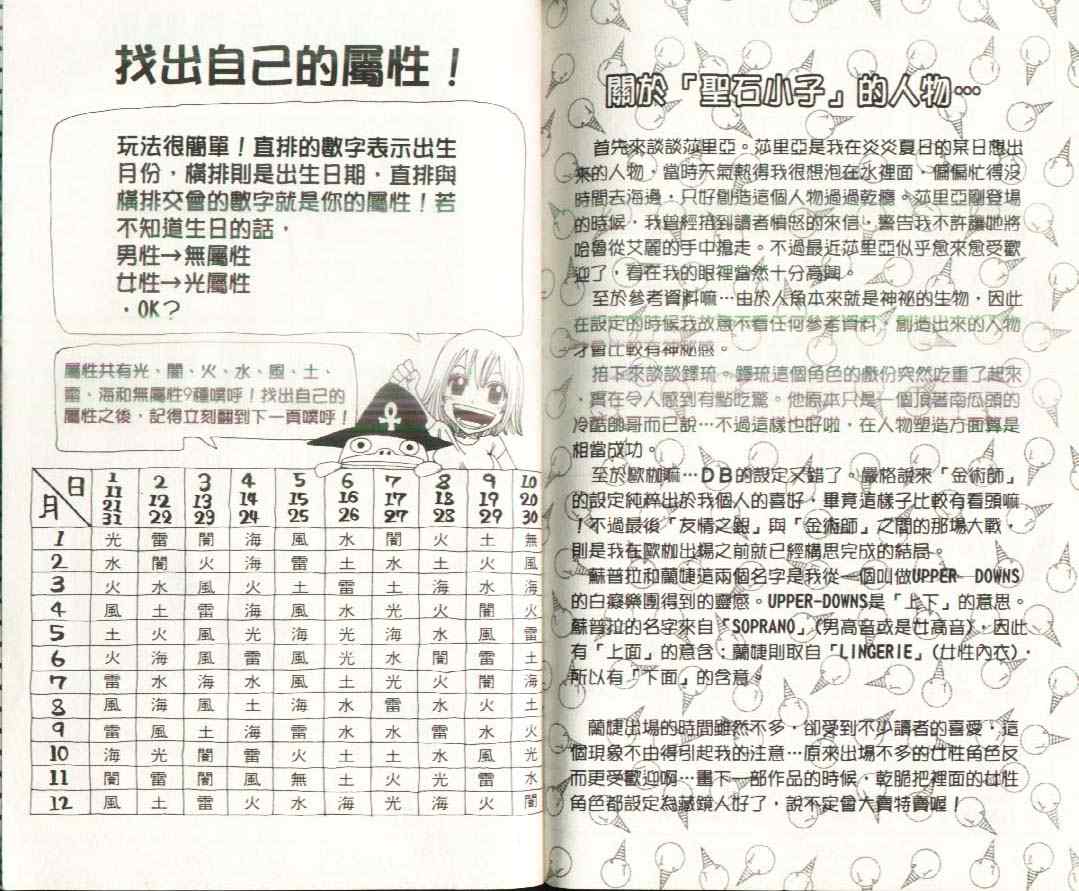 找出自己的屬性！
玩法很簡單！直排的數字表示出生
月份，橫排則是出生日期，直排與
橫排交會的數字就是你的屬性！若
不知道生日的話，
男性→無屬性
女性→光屬性
，OK？
屬性共有光、闇、火、水、風、土、
雷、海和無屬性9種噗呼！找出自己的
屬性之後，記得立刻翻到下一頁噗呼！
月 日 1 11 21 31 2 12 22 3 13 23 4 14 24 5 15 25 6 16 26 7 17 27 8 18 28 9 19 29 10 20 30
1 光 雷 闇 海 風 水 闇 火 土 無
2 水 闇 火 海 雷 土 水 土 火 風
3 火 水 風 火 土 雷 土 海 水 海
4 風 土 雷 海 風 水 光 火 闇 火
5 土 火 風 光 海 光 海 水 風 雷
6 火 海 風 雷 風 光 水 闇 雷 土
7 雷 水 海 水 風 土 光 火 闇 海
8 風 海 風 土 海 水 雷 水 火 土
9 雷 風 土 海 雷 水 水 雷 水 火
10 海 光 闇 雷 火 土 土 水 風 光
11 闇 雷 闇 風 無 土 火 光 雷 水
12 風 土 雷 火 水 海 光 海 火 闇
關於「聖石小子」的人物…
首先來談談莎里亞。莎里亞是我在炎炎夏日的某日想出
來的人物，當時天氣熱得我很想泡在水裡面，偏偏忙得沒
時間去海邊，只好創造這個人物過過乾癮。莎里亞剛登場
的時候，我曾經接到讀者憤怒的來信，警告我不許讓她將
哈魯從艾麗的手中搶走。不過最近莎里亞似乎愈來愈受歡
迎了，看在我的眼裡當然十分高興。
至於參考資料嘛…由於人魚本來就是神祕的生物，因此
在設定的時候我故意不看任何參考資料，創造出來的人物
才會比較有神祕感。
接下來談談鐸琉。鐸琉這個角色的戲份突然吃重了起來
，實在令人感到有點吃驚。他原本只是一個頂著南瓜頭的
冷酷帥哥而已說…不過這樣也好啦，在人物塑造方面算是
相當成功。
至於歐枷嘛…ＤＢ的設定又錯了。嚴格說來「金術師」
的設定純粹出於我個人的喜好，畢竟這樣子比較有看頭嘛
！不過最後「友情之銀」與「金術師」之間的那場大戰，
則是我在歐枷出場之前就已經構思完成的結局。
蘇普拉和蘭婕這兩個名字是我從一個叫做UPPER－DOWNS
的白癡樂團得到的靈感。UPPER-DOWNS是「上下」的意思。
蘇普拉的名字來自「SOPRANO」(男高音或是女高音)，因此
有「上面」的意含；蘭婕則取自「LINGERIE」(女性內衣)，
所以有「下面」的含意。
蘭婕出場的時間雖然不多，卻受到不少讀者的喜愛，這
個現象不由得引起我的注意…原來出場不多的女性角色反
而更受歡迎啊…畫下一部作品的時候，乾脆把裡面的女性
角色都設定為藏鏡人好了，說不定會大賣特賣喔！